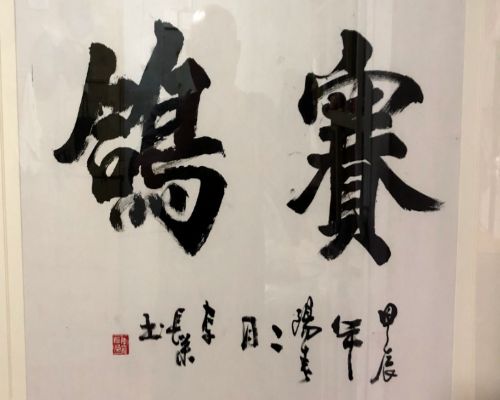 賽鴿
甲辰年陽春二月李長荣书